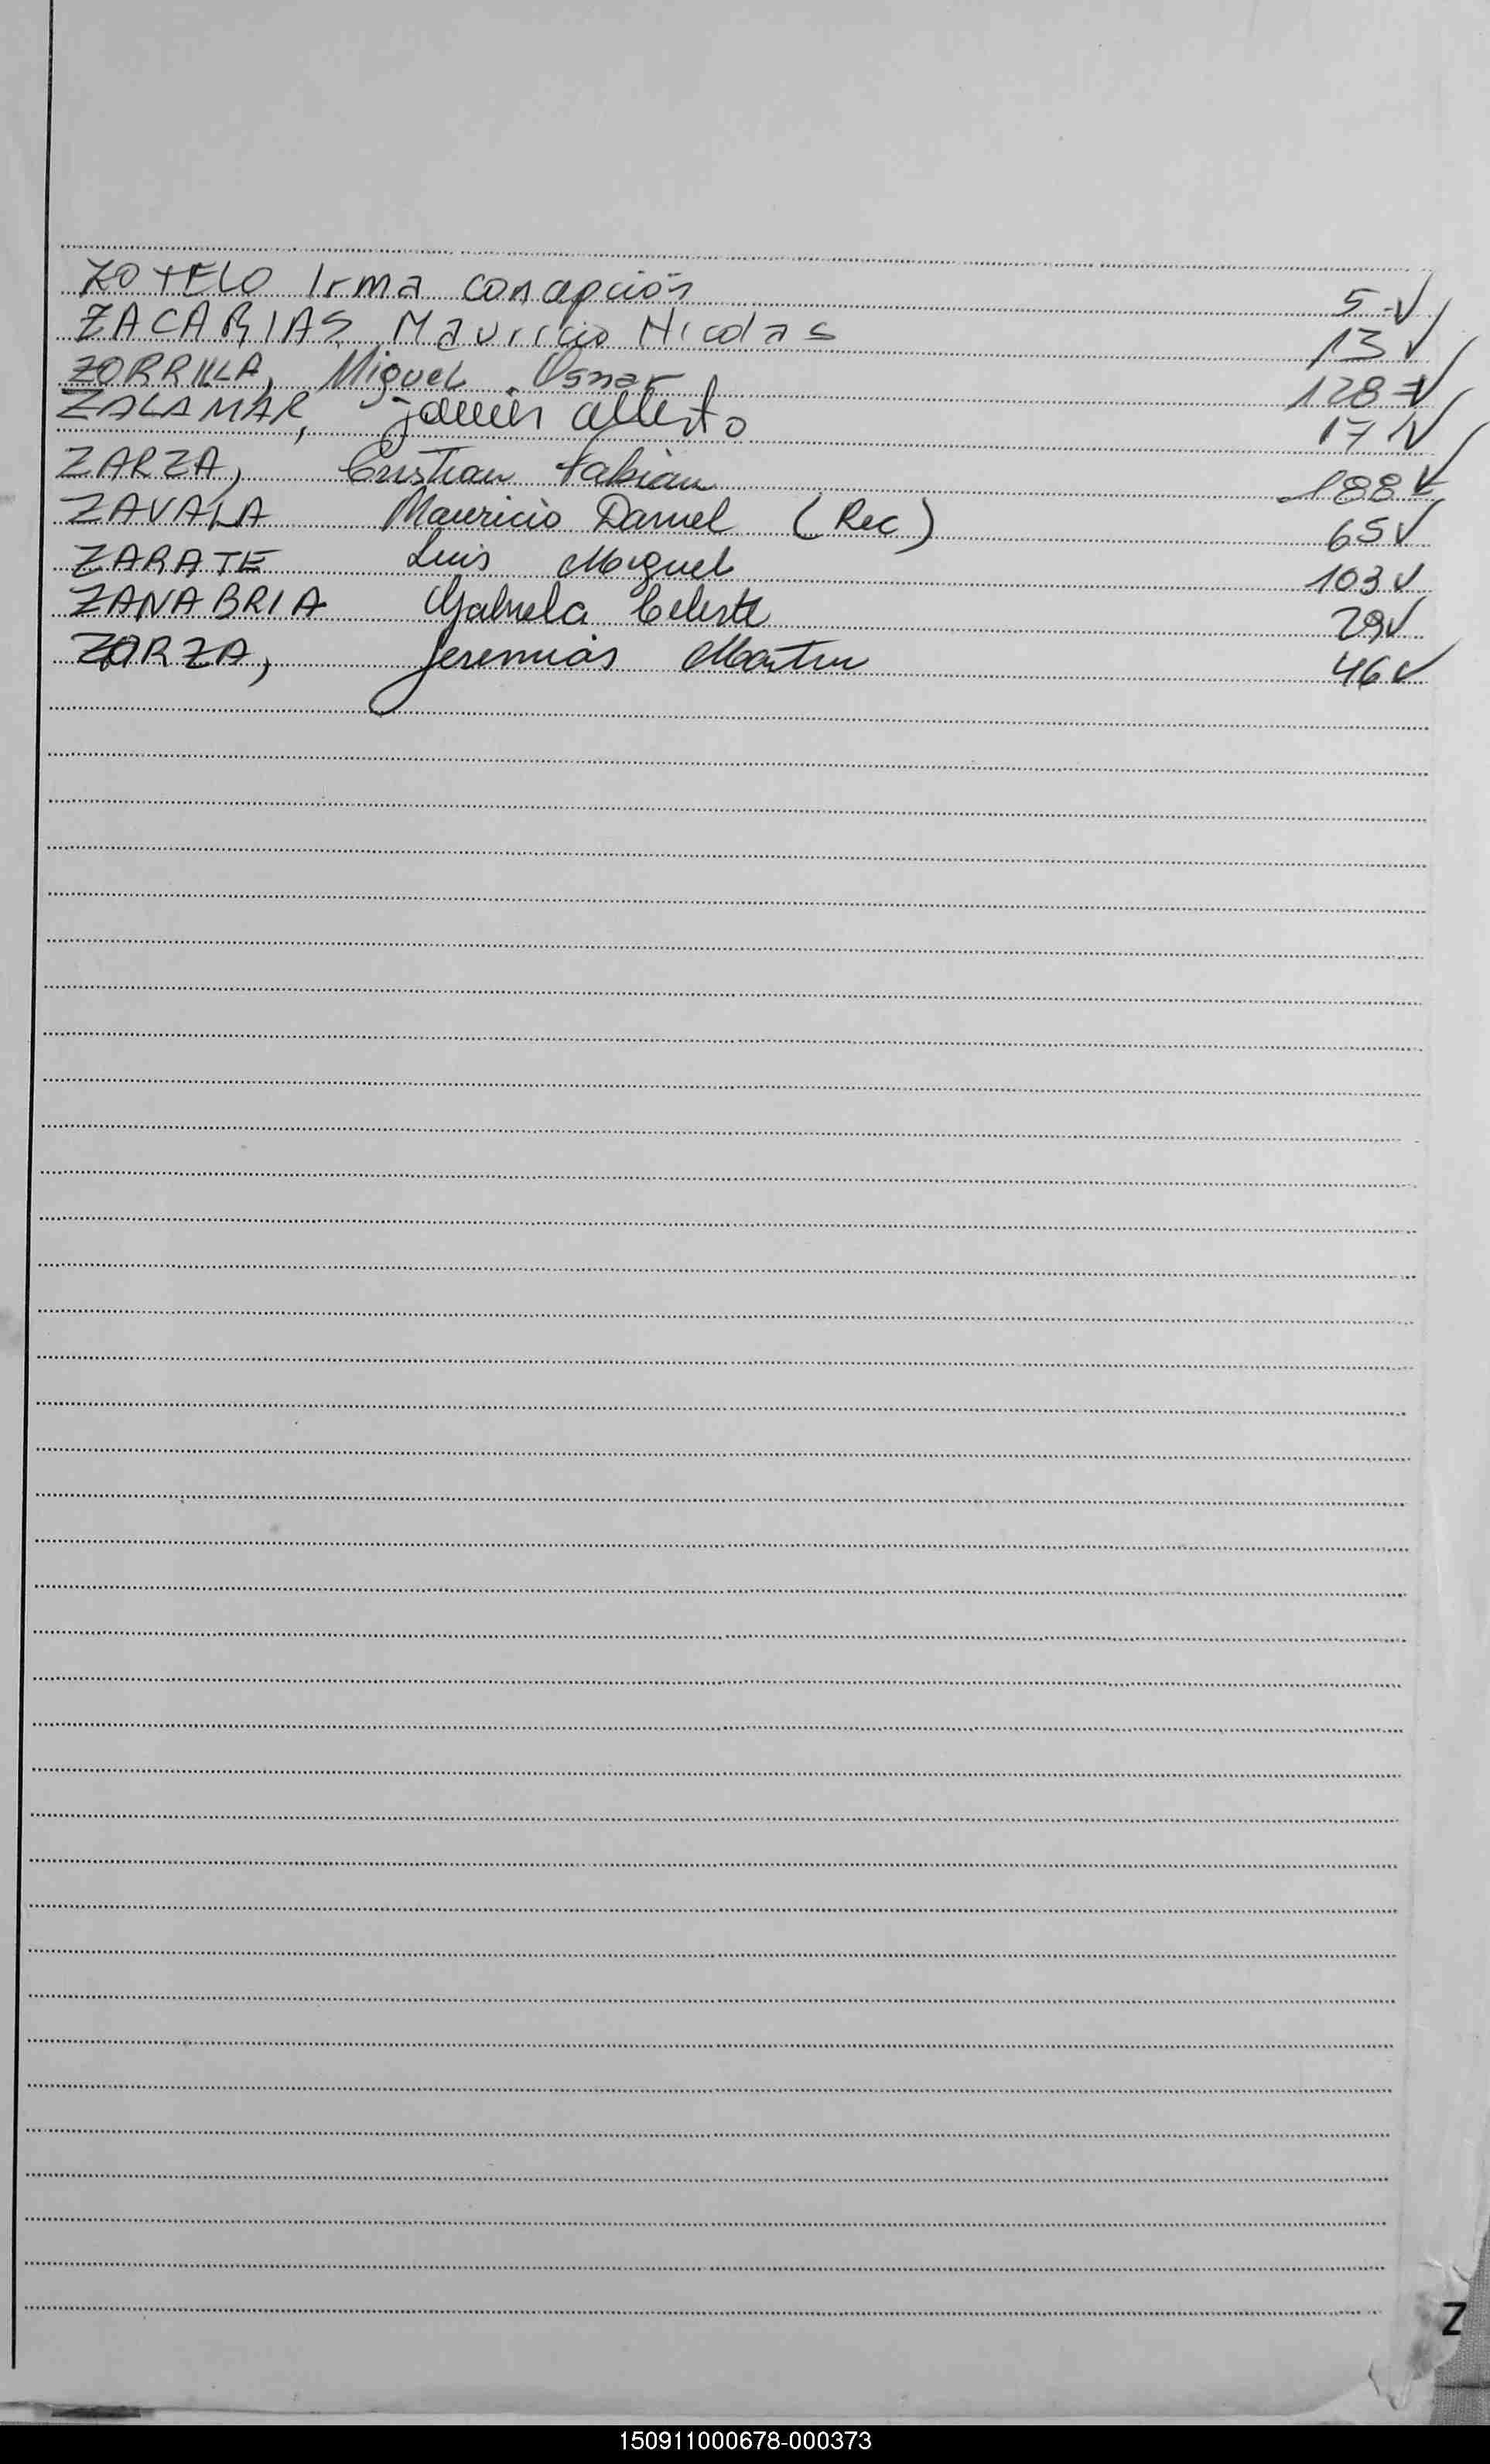 ZOTELO Irma Concepción 5 ✓
ZACARIAS Mauricio Nicolas 13 ✓
ZORRILLA, Miguel Osmar 128 ✓
ZALAMAR, javier alberto 171 ✓
ZARZA, Cristian Fabian 188 ✓
ZAVALA Mauricio Daniel (Rec) 65 ✓
ZARATE Luis Miguel 103 ✓
ZANABRIA Gabriela Celeste 29 ✓
ZARZA, Jeremias Martin 46 ✓
Z
150911000678-000373